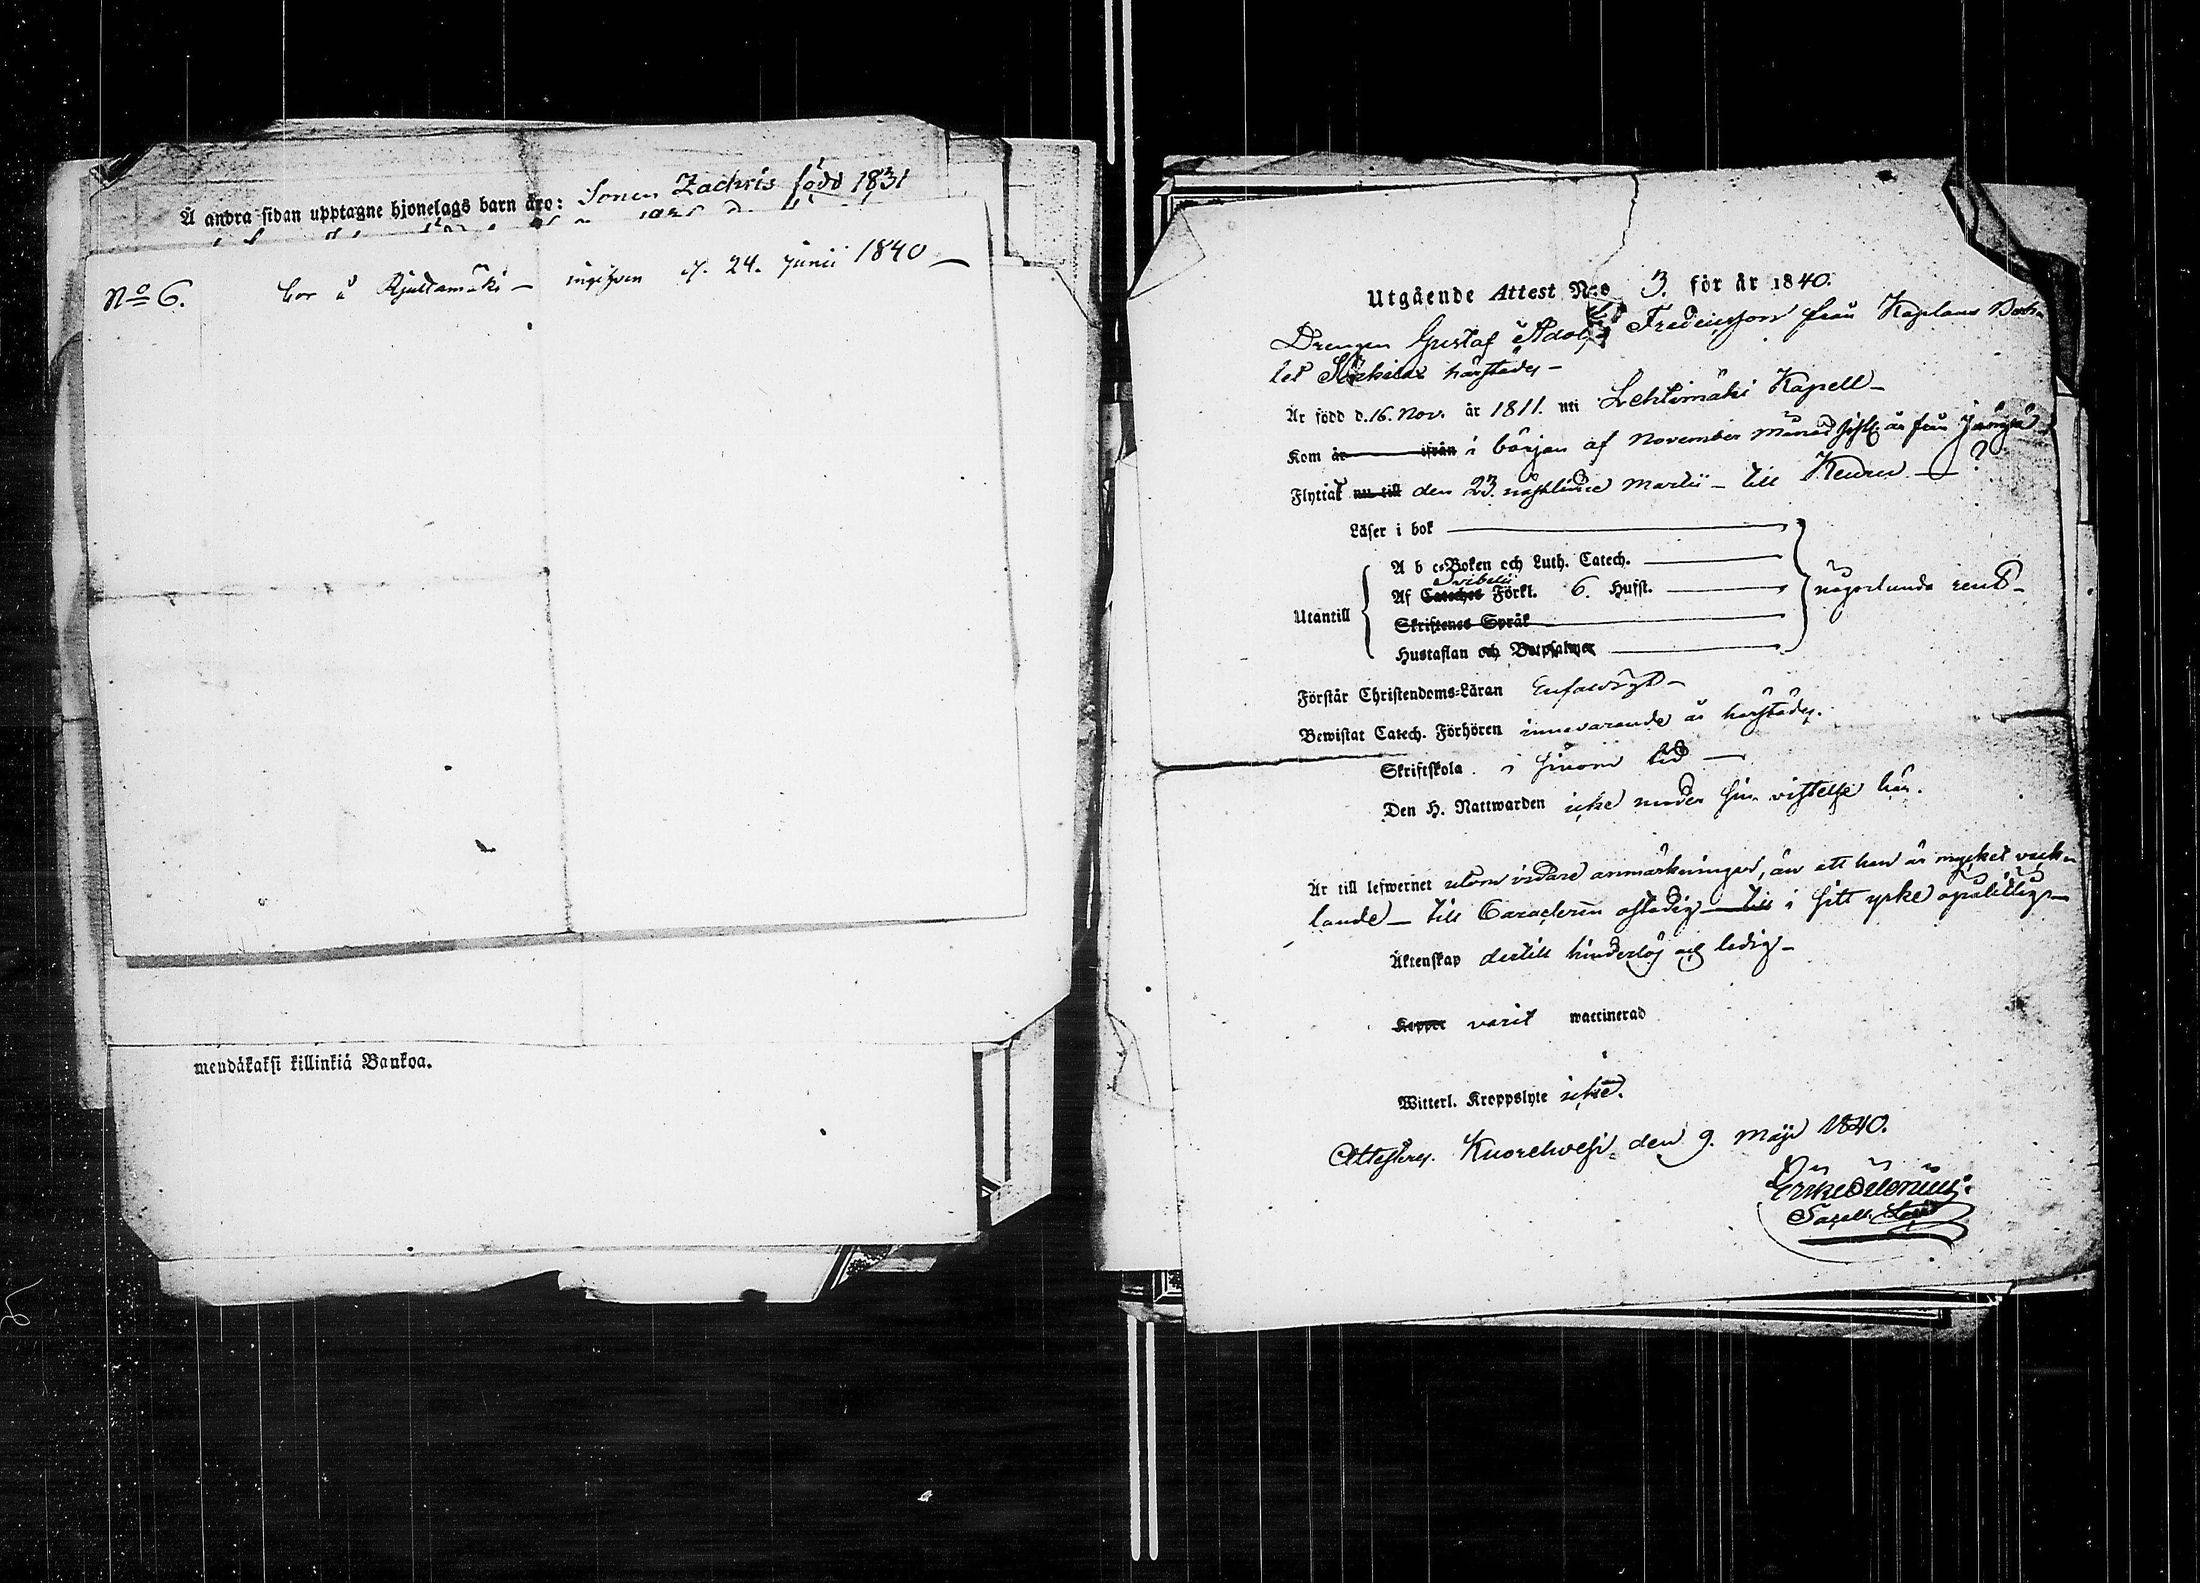 Å andra sidan upptagne hjonelags barn äro: Sonen Zachris född 1831
No 6. bor å Rjuttamäki – ingifven d. 24. Junii 1840 –
mendäkaksi killinkiä Bankoa.
Utgående Attest N:o 3. för år 1840.
Drengen Gustaf Adolf Fredricsson från Kaplans Bol-
let härstädes –
Är född d. 16. Nov. år 1811. uti Lehtimäki Kapell –
Kom år ifrån i början af November månad sistl. år från
Flyttat nu till den 23. nästlidne Martii – till Keuru – ?
Läser i bok
A b c-Boken och Luth. Catech.
Svebelii
Af Cateches Förkl. 6. Hufst. någorlunda rent –
Utantill
Skriftenes Språk
Hustaflan och Botpsalmer
Förstår Christendoms-Läran Enfaldigt –
Bewistat Catech. Förhören innevarande år härstädes.
Skriftskola i sinom tid –
Den H. Nattwarden icke under sin vistelse här.
Är till lefwernet utom vidare anmärkningar, än att han är mycket vack-
lande – till Caracteren ostadig – till i sitt yrke opålitlig –
Äktenskap dertill hinderlös och ledig –
Koppor varit waccinerad
Witterl. Kroppslyte icke.
Attesterar. Kuorehvesi, den 9. Maji 1840.